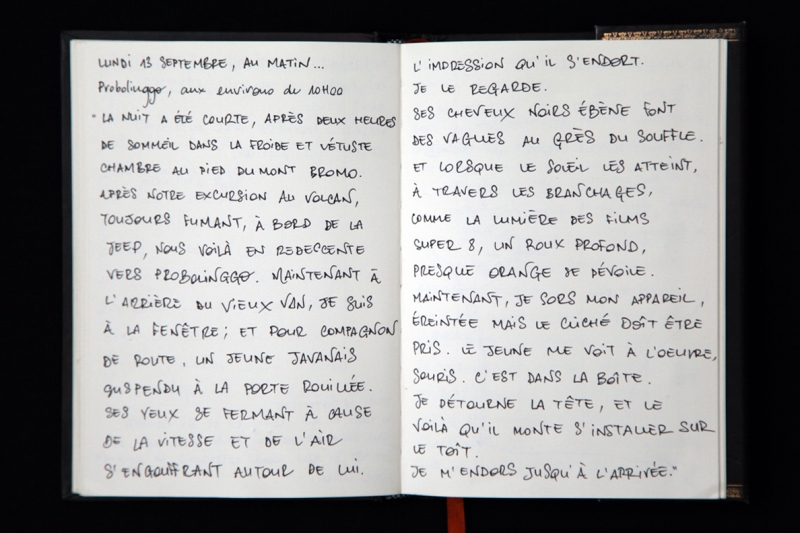 LUNDI 13 SEPTEMBRE, AU MATIN...
Probolinggo, aux environs de 10H00
"LA NUIT A ÉTÉ COURTE, APRÈS DEUX HEURES
DE SOMMEIL DANS LA FROIDE ET VÉTUSTE
CHAMBRE AU PIED DU MONT BROMO.
APRÈS NOTRE EXCURSION AU VOLCAN,
TOUJOURS FUMANT, À BORD DE LA
JEEP, NOUS VOILÀ EN REDESCENTE
VERS PROBOLINGGO. MAINTENANT À
L'ARRIÈRE DU VIEUX VAN, JE SUIS
À LA FENÊTRE; ET POUR COMPAGNON
DE ROUTE, UN JEUNE JAVANAIS
SUSPENDU À LA PORTE ROUILLÉE.
SES YEUX SE FERMANT À CAUSE
DE LA VITESSE ET DE L'AIR
S'ENGOUFFRANT AUTOUR DE LUI.
L'IMPRESSION QU'IL S'ENDORT.
JE LE REGARDE.
SES CHEVEUX NOIRS ÉBÈNE FONT
DES VAGUES AU GRÈS DU SOUFFLE.
ET LORSQUE LE SOLEIL LES ATTEINT,
À TRAVERS LES BRANCHAGES,
COMME LA LUMIÈRE DES FILMS
SUPER 8, UN ROUX PROFOND,
PRESQUE ORANGE SE DÉVOILE.
MAINTENANT, JE SORS MON APPAREIL,
ÉREINTÉE MAIS LE CLICHÉ DOÎT ÊTRE
PRIS. LE JEUNE ME VOIT À L'OEUVRE,
SOURIS. C'EST DANS LA BOÎTE.
JE DÉTOURNE LA TÊTE, ET LE
VOILÀ QU'IL MONTE S'INSTALLER SUR
LE TOÎT.
JE M'ENDORS JUSQU'À L'ARRIVÉE."